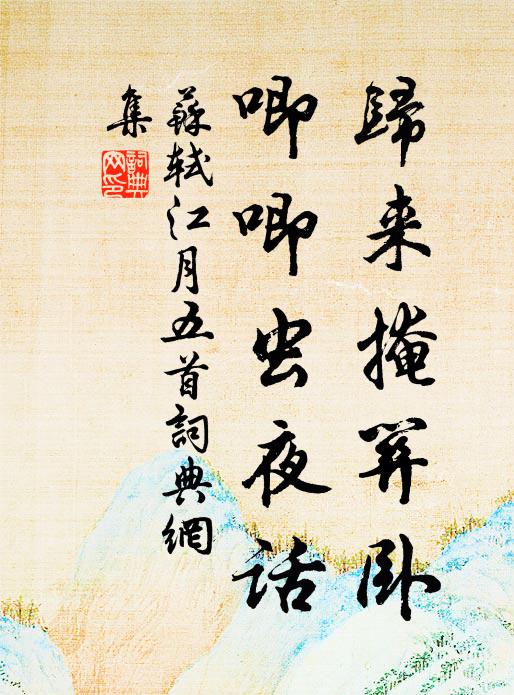 歸来掩関卧
唧唧虫夜話
蘇軾江月五首詞典網
集
詞典
网印